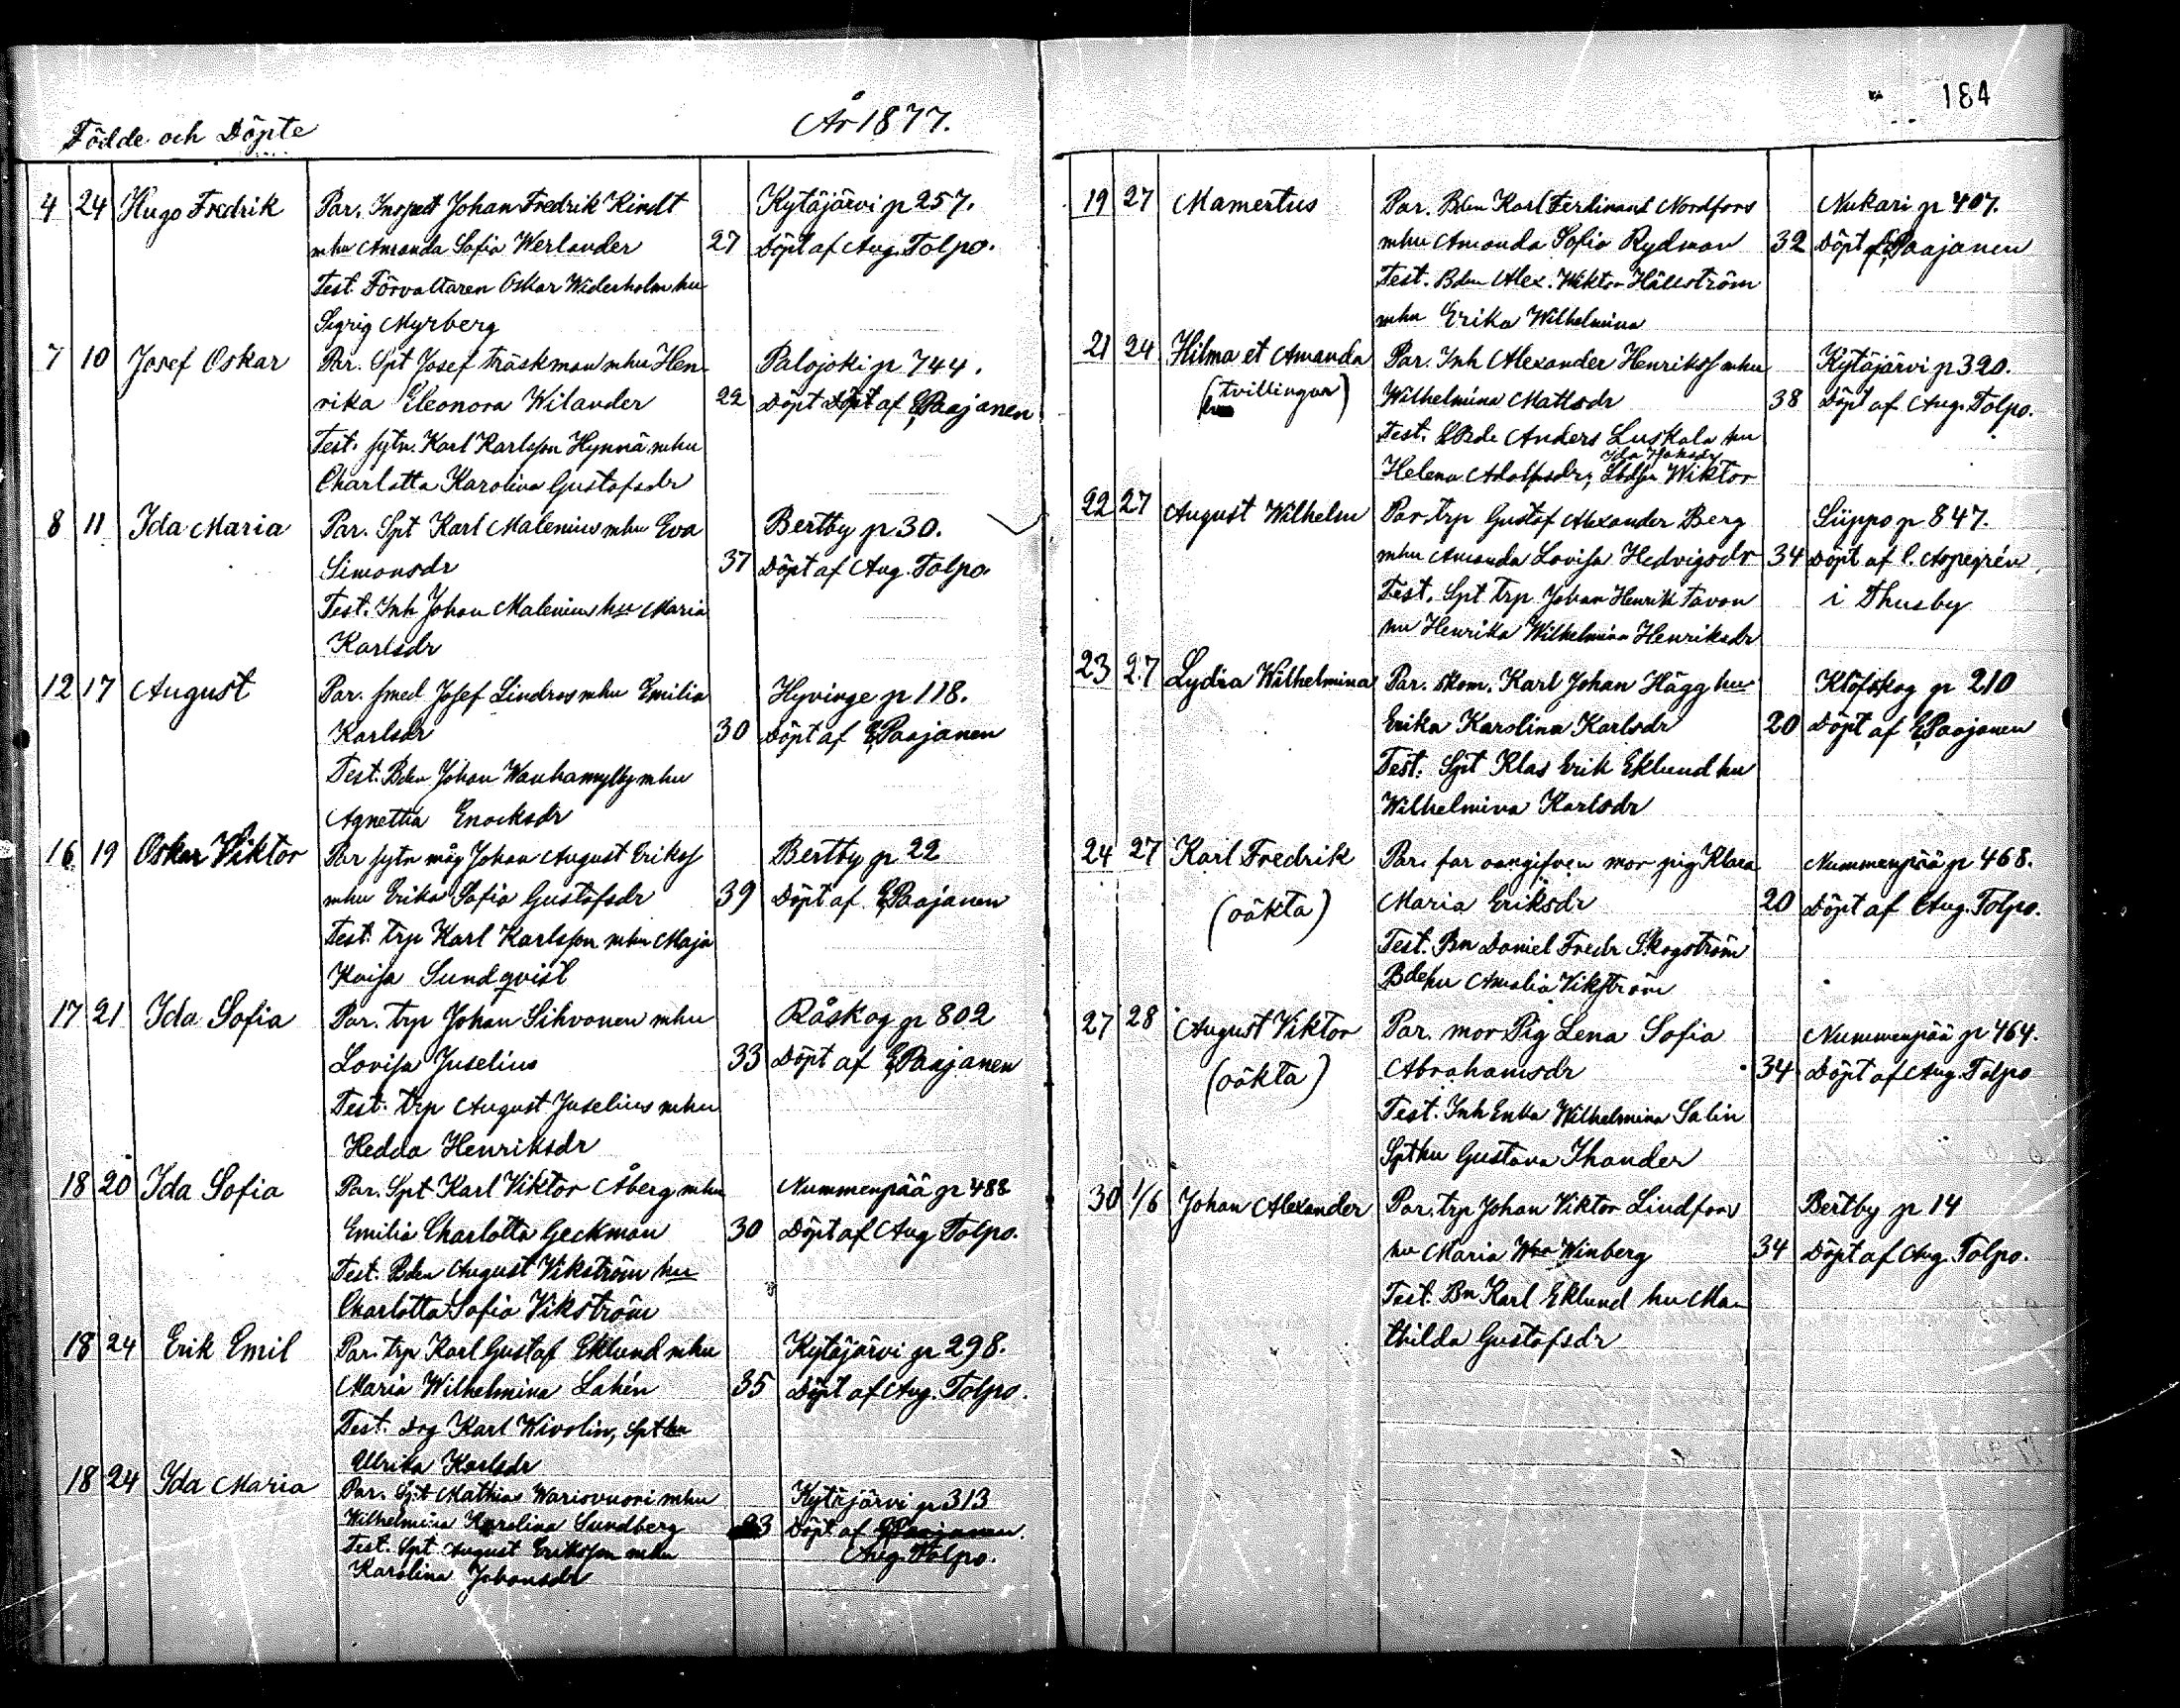 Födde och Döpte
År 1877.
4 24 Hugo Fredrik Par. Inspect Johan Fredrik Kindt Kytäjärvi p 257.
mhu Amanda Sofia Werlander 27 Döpt af Aug. Tolpo.
Test. Förvaltaren Oskar Widerholm hu
Sigrig Myrberg
7 10 Josef Oskar Par. Spt Josef Träskman mhu Hen- Palojoki p 744.
rika Eleonora Wilander 22 Döpt Döpt af E Paajanen
Test. sytn. Karl Karlsson Hynnä mhu
Charlotta Karolina Gustafsdr
8 11 Ida Maria Par. Spt Karl Malenius mhu Eva Bertby p 30.
Simonsdr 37 Döpt af Aug. Tolpo.
Test. Inh Johan Malenius hu Maria
Karlsdr
12 17 August Par. smed Josef Lindros mhu Emilia Hyvinge p 118.
Karlsdr 30 Döpt af E Paajanen
Test. Bdn Johan Wanhamylly mhu
Agnetha Enocksdr
16 19 Oskar Viktor Par sytn måg Johan August Eriks Bertby p 22
mhu Erika Sofia Gustafsdr 39 Döpt af E Paajanen
Test. trp Karl Karlsson mhu Maja
Kaisa Sundqvist
17 21 Ida Sofia Par. trp Johan Sihvonen mhu Råskog p 802
Lovisa Juselius 33 Döpt af E Paajanen
Test. trp August Juselius mhu
Hedda Henriksdr
18 20 Ida Sofia Par. Spt Karl Viktor Åberg mhu Nummenpää p 488
Emilia Charlotta Geckman 30 Döpt af Aug Tolpo.
Test. Bdn August Vikström hu
Charlotta Sofia Vikström
18 24 Erik Emil Par. trp Karl Gustaf Eklund mhu Kytäjärvi p 298.
Maria Wilhelmina Lahén 35 Döpt af Aug. Tolpo.
Test. Drg Karl Wivolin, Spt hu
Ulrika Karlsdr
18 24 Ida Maria Par. Spt Mathias Wariovuori mhu Kytäjärvi p 313
Wilhelmina Karolina Sundberg 23 Döpt af E Paajanen.
Test. Spt August Eriksson mhu Aug. Tolpo.
Karolina Johansdr
184
19 27 Mamertus Par. Bdn Karl Ferdinand Nordfors Nukari p 407.
mhu Amanda Sofia Rydman 32 Döpt af E Paajanen
Test. Bdn Alex. Wiktor Hällström
mhu Erika Wilhelmina
21 24 Hilma et Amanda Par. Inh Alexander Henrikss mhu Kytäjärvi p 320.
(tvillingar) Wilhelmina Mattsdr 38 Döpt af Aug. Tolpo.
Test. Bde Anders Luskala hu
Ida Jakobsdr
Helena Adolfsdr; Wiktor
22 27 August Wilhelm Par. trp Gustaf Alexander Berg Siippo p 847.
mhu Amanda Lovisa Hedvigsdr 34 Döpt af C. Aspegrén
Test. Spt trp Johan Henrik Tavon i Thusby
hu Henrika Wilhelmina Henriksdr
23 27 Lydia Wilhelmina Par. skom. Karl Johan Hägg hu Klöfskog p 210
Erika Karolina Karlsdr 20 Döpt af E Paajanen
Test. Spt Klas Erik Eklund hu
Wilhelmina Karlsdr
24 27 Karl Fredrik Par. far oangifven mor pig Klara Nummenpää p 468.
(oäkta) Maria Eriksdr 20 Döpt af Aug. Tolpo.
Test. Bn Daniel Fredr Skogström
Bdehu Amalia Vikström
27 28 August Viktor Par. mor Pig Lena Sofia Nummenpää p 464.
(oäkta) Abrahamsdr 34 Döpt af Aug. Tolpo
Test. Inh Enka Wilhelmina Salin
Spthu Gustava Thander
30 1/6 Johan Alexander Par. trp Johan Viktor Lindfors Bertby p 14
hu Maria Winberg 34 Döpt af Aug. Tolpo.
Test. Bn Karl Eklund hu Ma-
thilda Gustafsdr